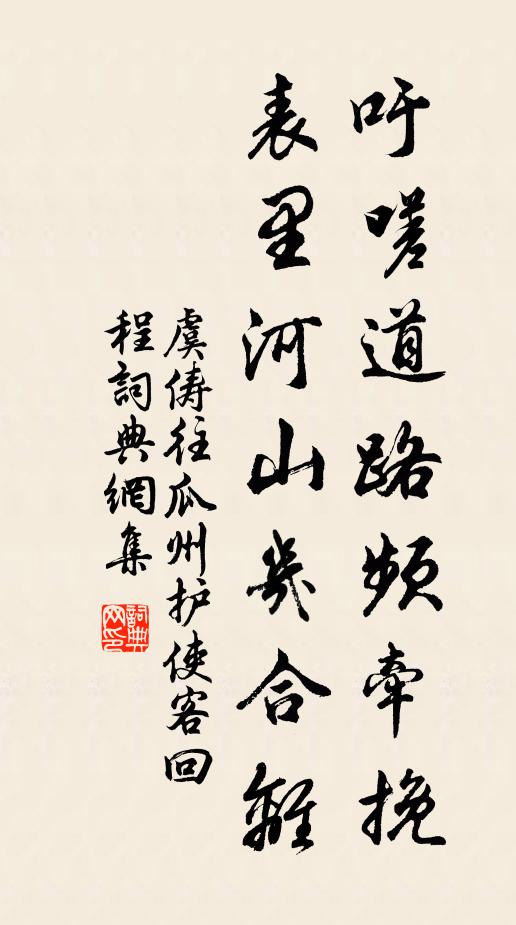 吁嗟道路频牵挽
表里河山几合離
虞俦往瓜州护使客回
程詞典網集
詞典网印